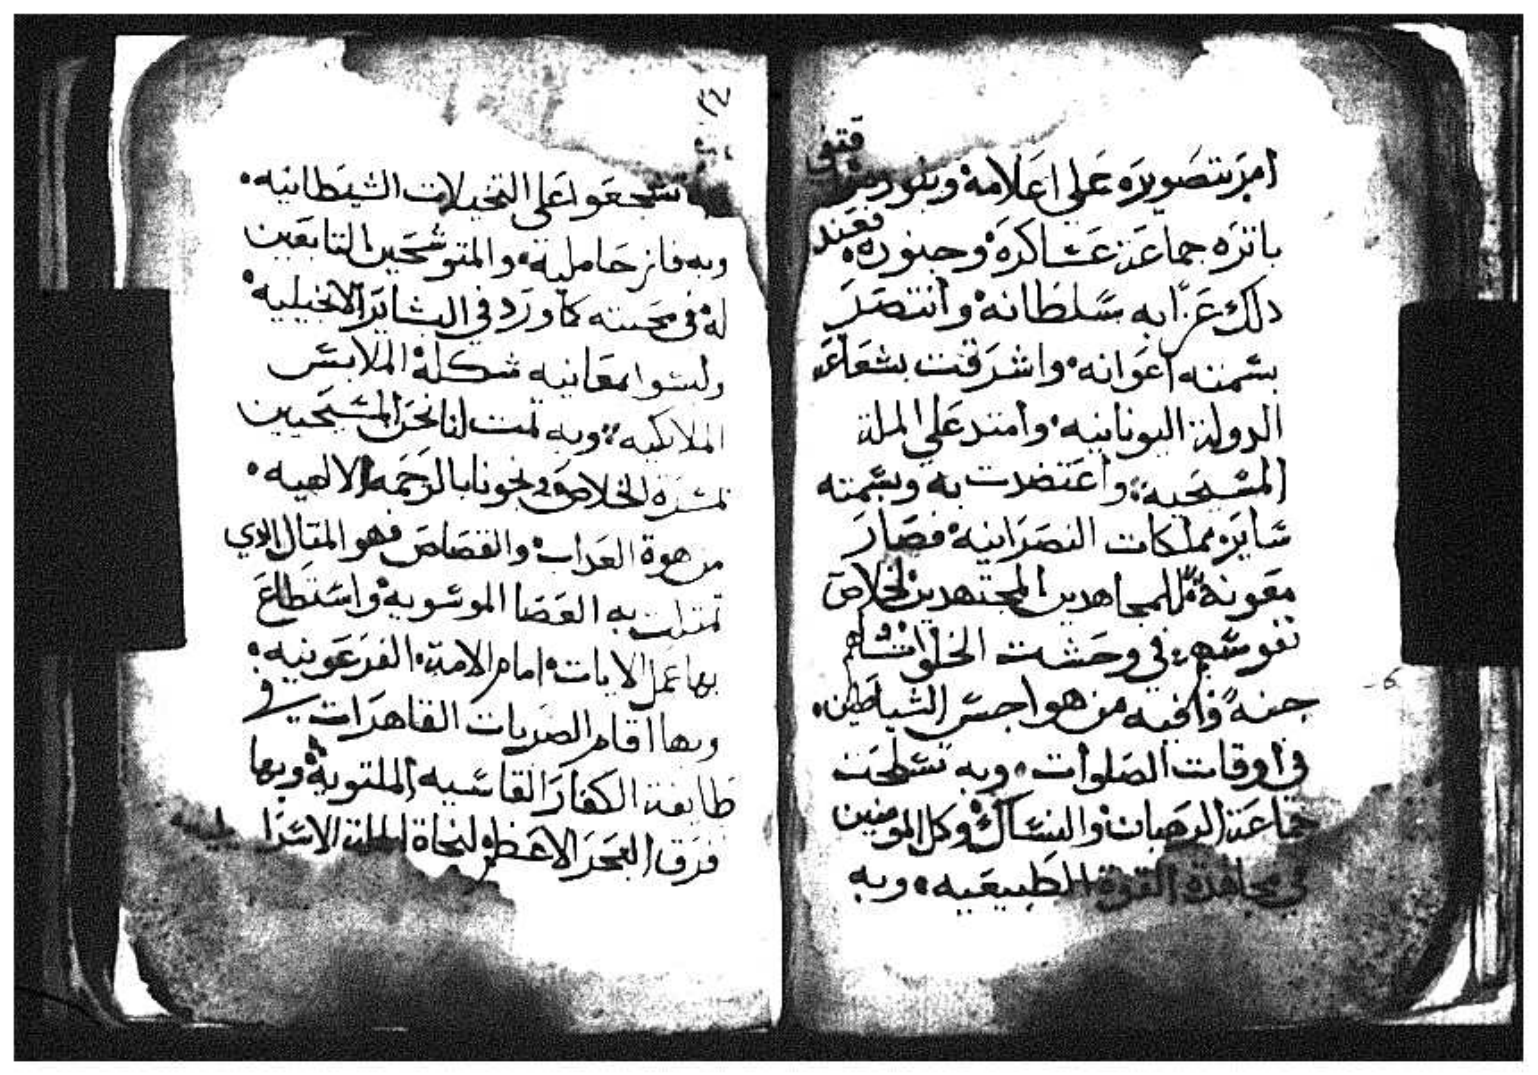 امر بتصويره على اعلامه وبنوده يقتفي
باثره جماعة عساكره وجنوده فعند
دلك عز به سلطانه وانتصر
بسمته اعوانه واشرقت بشعاعه
الدولة اليونانيه وامتد على الملة
المسيحية واعتضدت به وبسمته
ساير مملكات النصرانيه فصار
معونة للمجاهدين المجتهدين لخلاص
نفوسهم في وحشت الخلوات
جنه وافيه من هواجس الشياطين
في اوقات الصلوات وبه تسلحت
جماعة الرهبان والنساك وكل المومنين
في مجاهدة القوة الطبيعيه وبه
٢٤
تشجعوا على التخيلات الشيطانيه
وبه فاز حامليه والمتوشحين التابعين
له في محبته كما ورد في البشاير الانجيليه
ولبسوا معانيه شكلة الملابس
الملايكيه وبه تمت لنا نحن المسيحيين
ثمرة الخلاص وفي نجونا بالرحمه الالهيه
من هوة العداب والقصاص فهو المثال الدي
تمثلت به العصا الموسويه واستطاع
بها عمل الايات امام الامة الفرعونيه
وبها اقام الضربات القاهرات في
طايفة الكفار القاسيه الملتوية وبها
فرق البحر الاعظم لنجاة الملة الاسراييليه